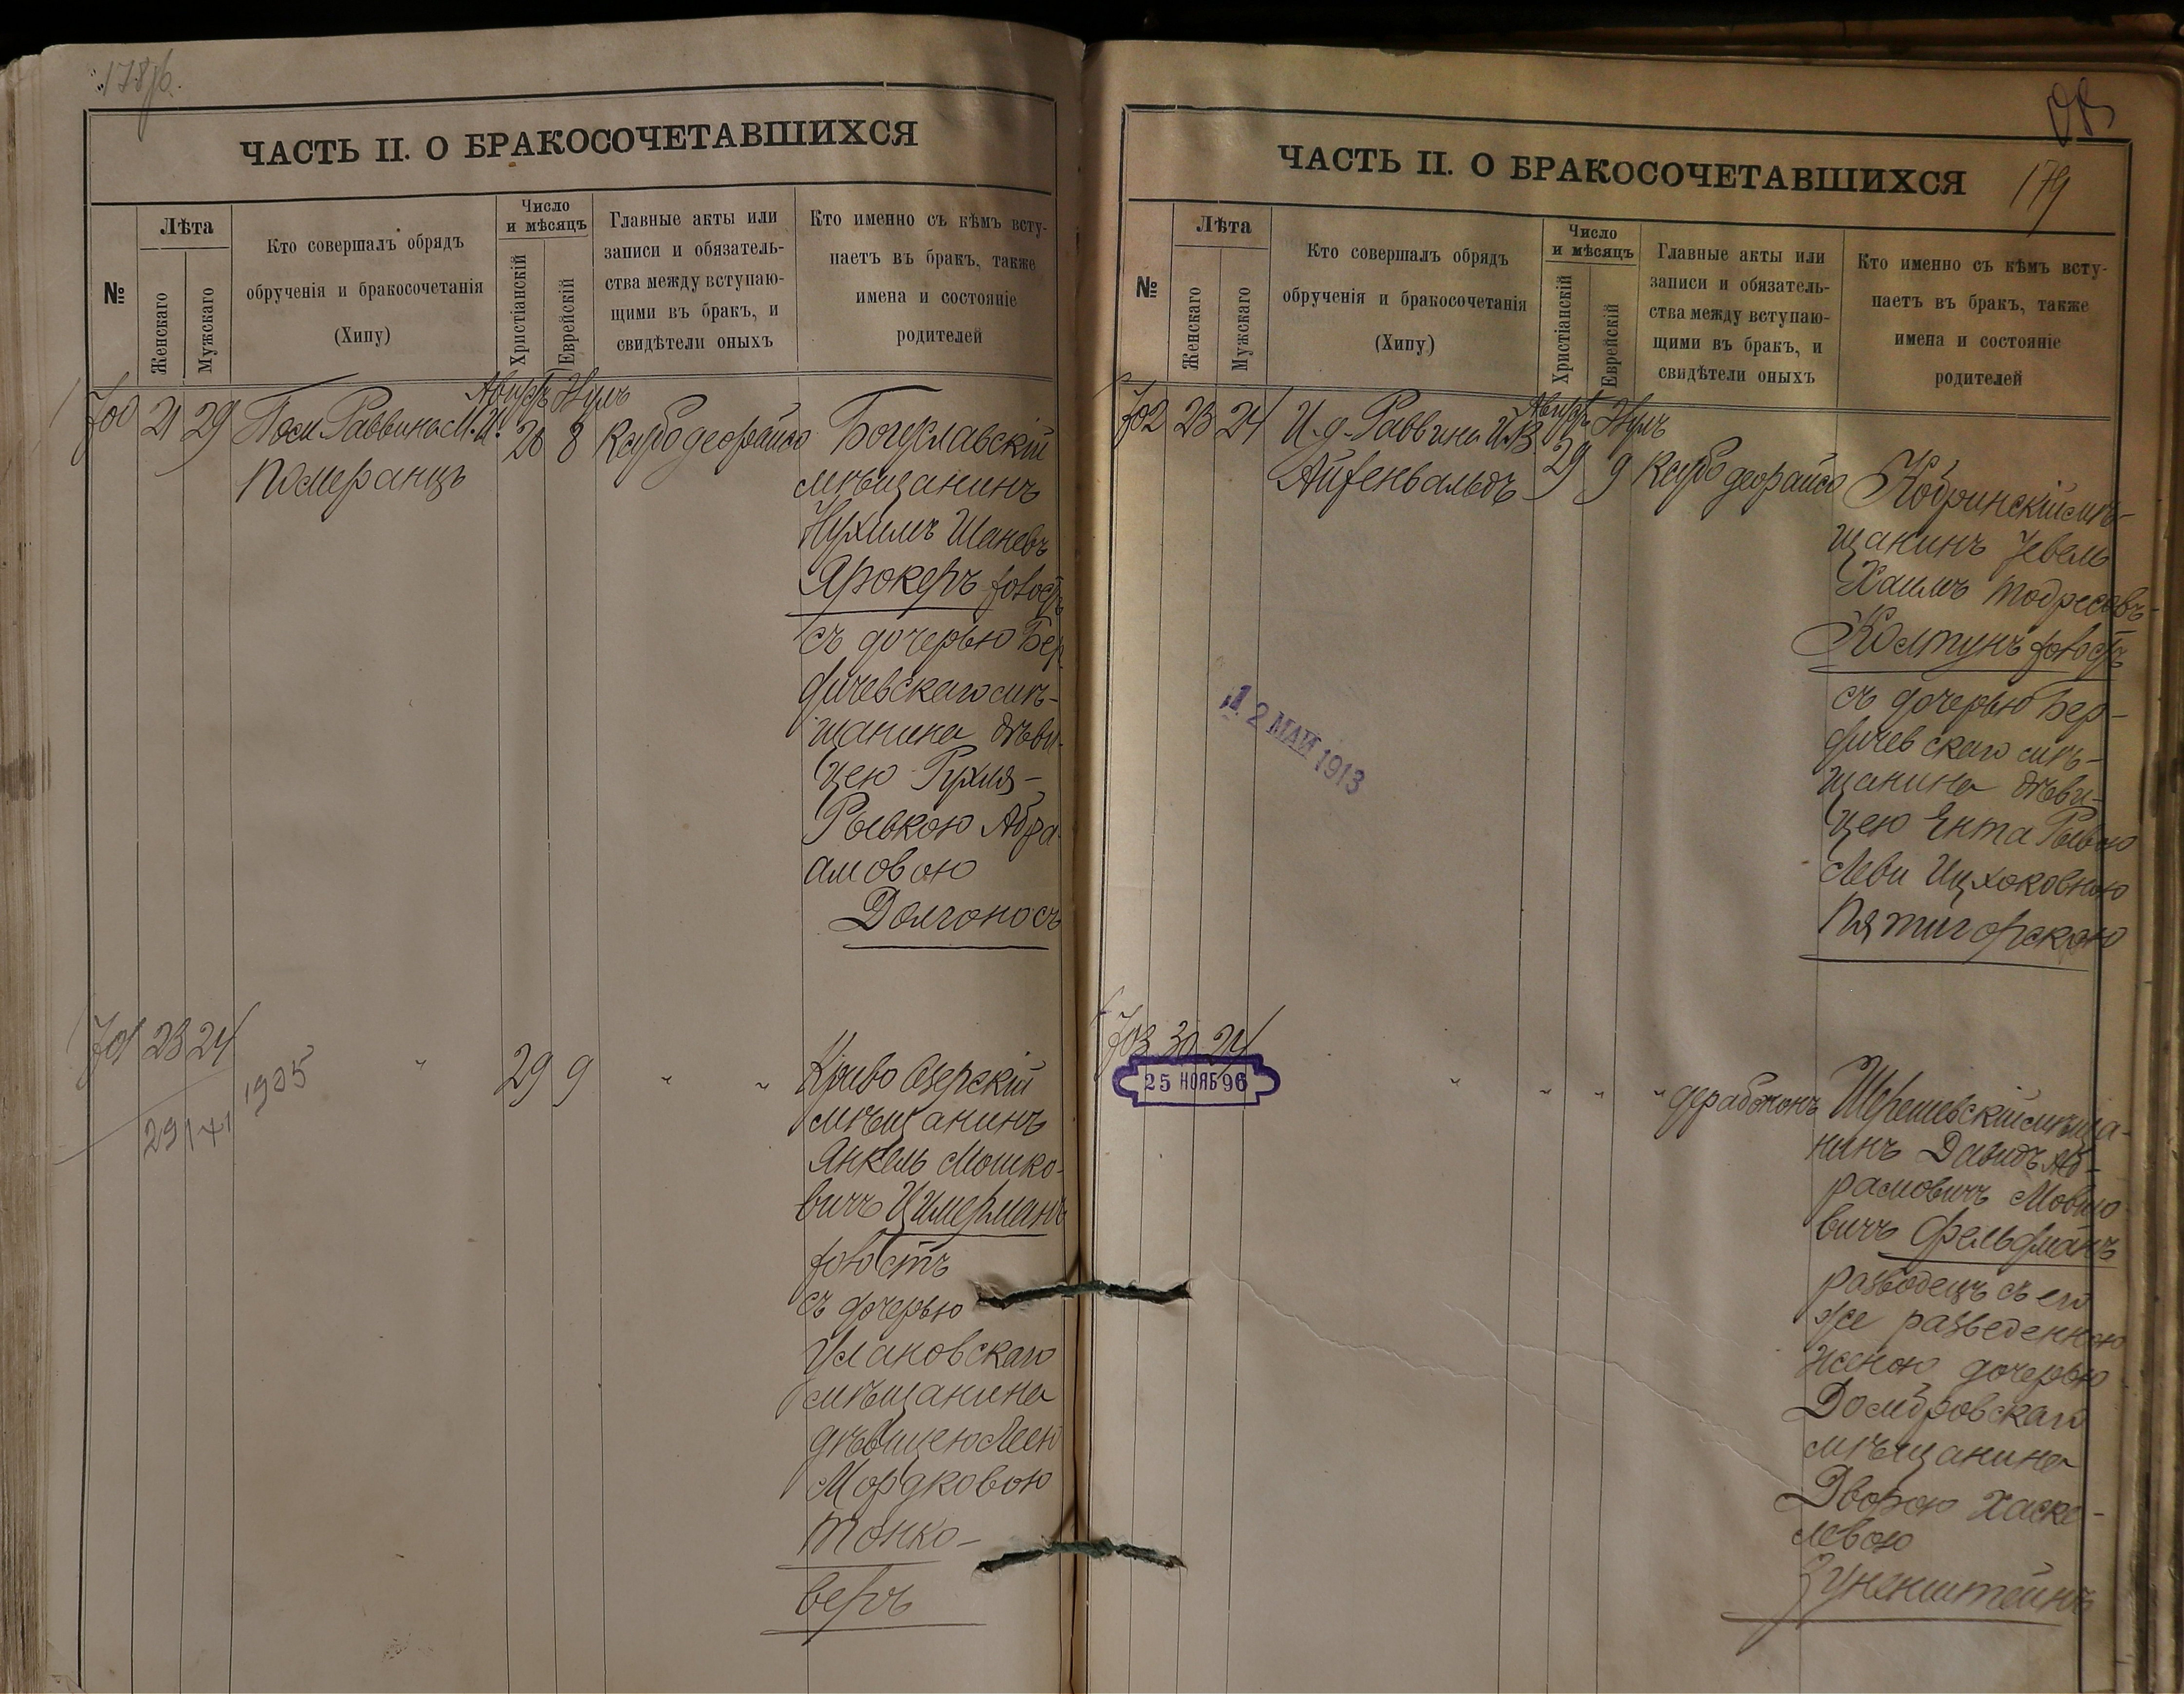 178 об.
ЧАСТЬ II. О БРАКОСОЧЕТАВШИХСЯ
№
Лѣта
Женскаго
Мужскаго
Кто совершалъ обрядъ
обрученія и бракосочетанія
(Хипу)
Число
и мѣсяцъ
Христіанскій
Еврейскій
Главные акты или
записи и обязатель-
ства между вступаю-
щими въ бракъ, и
свидѣтели оныхъ
Кто именно съ кѣмъ всту-
паетъ въ бракъ, также
имена и состояніе
родителей
700 21 29 Пом. Раввина М. И.
Померанцъ
Августъ Элулъ
26 8 Ксубо деорайсо
Богуславскій
мѣщанинъ
Нухимъ Шаевъ
Ярокеръ холостъ
съ дочерью Бер
дичевскаго мѣ-
щанина дѣви-
цею Рухля-
Рывкою Абра-
амовою
Долгоносъ
701 23 24 " 29 9 " "
29/71 1905
Криво Озерскій
мѣщанинъ
Янкель Мошко-
вичъ Цимерманъ
холостъ
съ дочерью
Улановскаго
мѣщанина
дѣвицею Леею
Мордковою
Тонко-
веръ
179
ЧАСТЬ II. О БРАКОСОЧЕТАВШИХСЯ
№
Лѣта
Женскаго
Мужскаго
Кто совершалъ обрядъ
обрученія и бракосочетанія
(Хипу)
Число
и мѣсяцъ
Христіанскій
Еврейскій
Главные акты или
записи и обязатель-
ства между вступаю-
щими въ бракъ, и
свидѣтели оныхъ
Кто именно съ кѣмъ всту-
паетъ въ бракъ, также
имена и состояніе
родителей
702 23 24 И. д. Раввина И. В.
Айзенвальдъ
Августъ Элулъ
29 9 Ксубо деорайсо
Кобринскій мѣ-
щанинъ Зевель
Хаимъ Тодресовъ-
Колтунъ холостъ
съ дочерью Бер-
дичевскаго мѣ-
щанина дѣви-
цею Ента Рывою
Леви Ицхоковною
Пятигорскою
2 МАЙ 1913
703 30 24 " " " " дерабононъ
25 НОЯБ 96
Шерешевскій мѣща-
нинъ Давидъ Аб-
рамовичъ Мовшо-
вичъ Фельдманъ
разводецъ съ его
же разведенною
женою дочерью
Домбровскаго
мѣщанина
Дворою Хаске-
левою
Зуненштейнъ